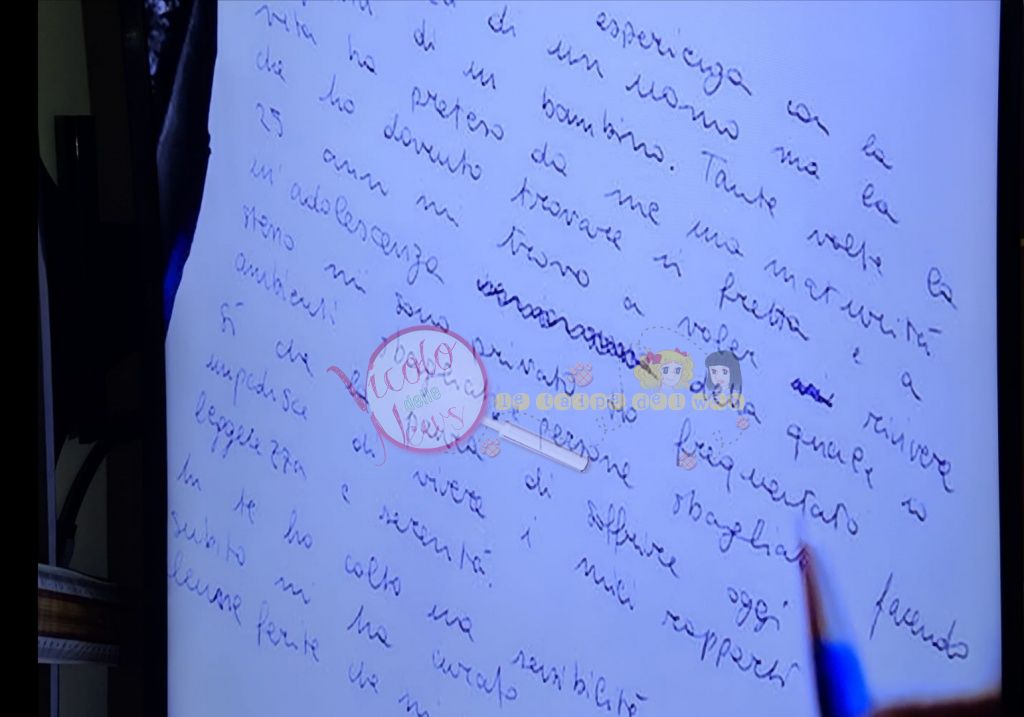 di esperienza con la
di un uomo ma la
di un bambino. Tante volte la
vita ha preteso da me una maturità
che ho dovuto trovare in fretta e a
25 anni mi trovo a voler rivivere
un'adolescenza della quale io
stesso mi sono privato. Ho frequentato
ambienti persone sbagliate facendo
sì che la paura di soffrire oggi
impedisce di vivere i miei rapporti
leggerezza e serenità.
In te ho colto una sensibilità
subito mi ha curato
ferite che
Vicolo
delle
News
le talpe del web